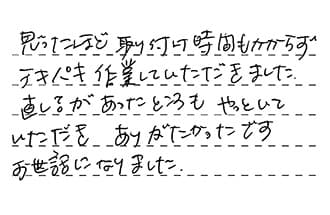 思ったほど取り付け時間もかからず
テキパキ作業していただきました.
直しるがあったところも やっといて
いただき ありがたかったです
お世話になりました.